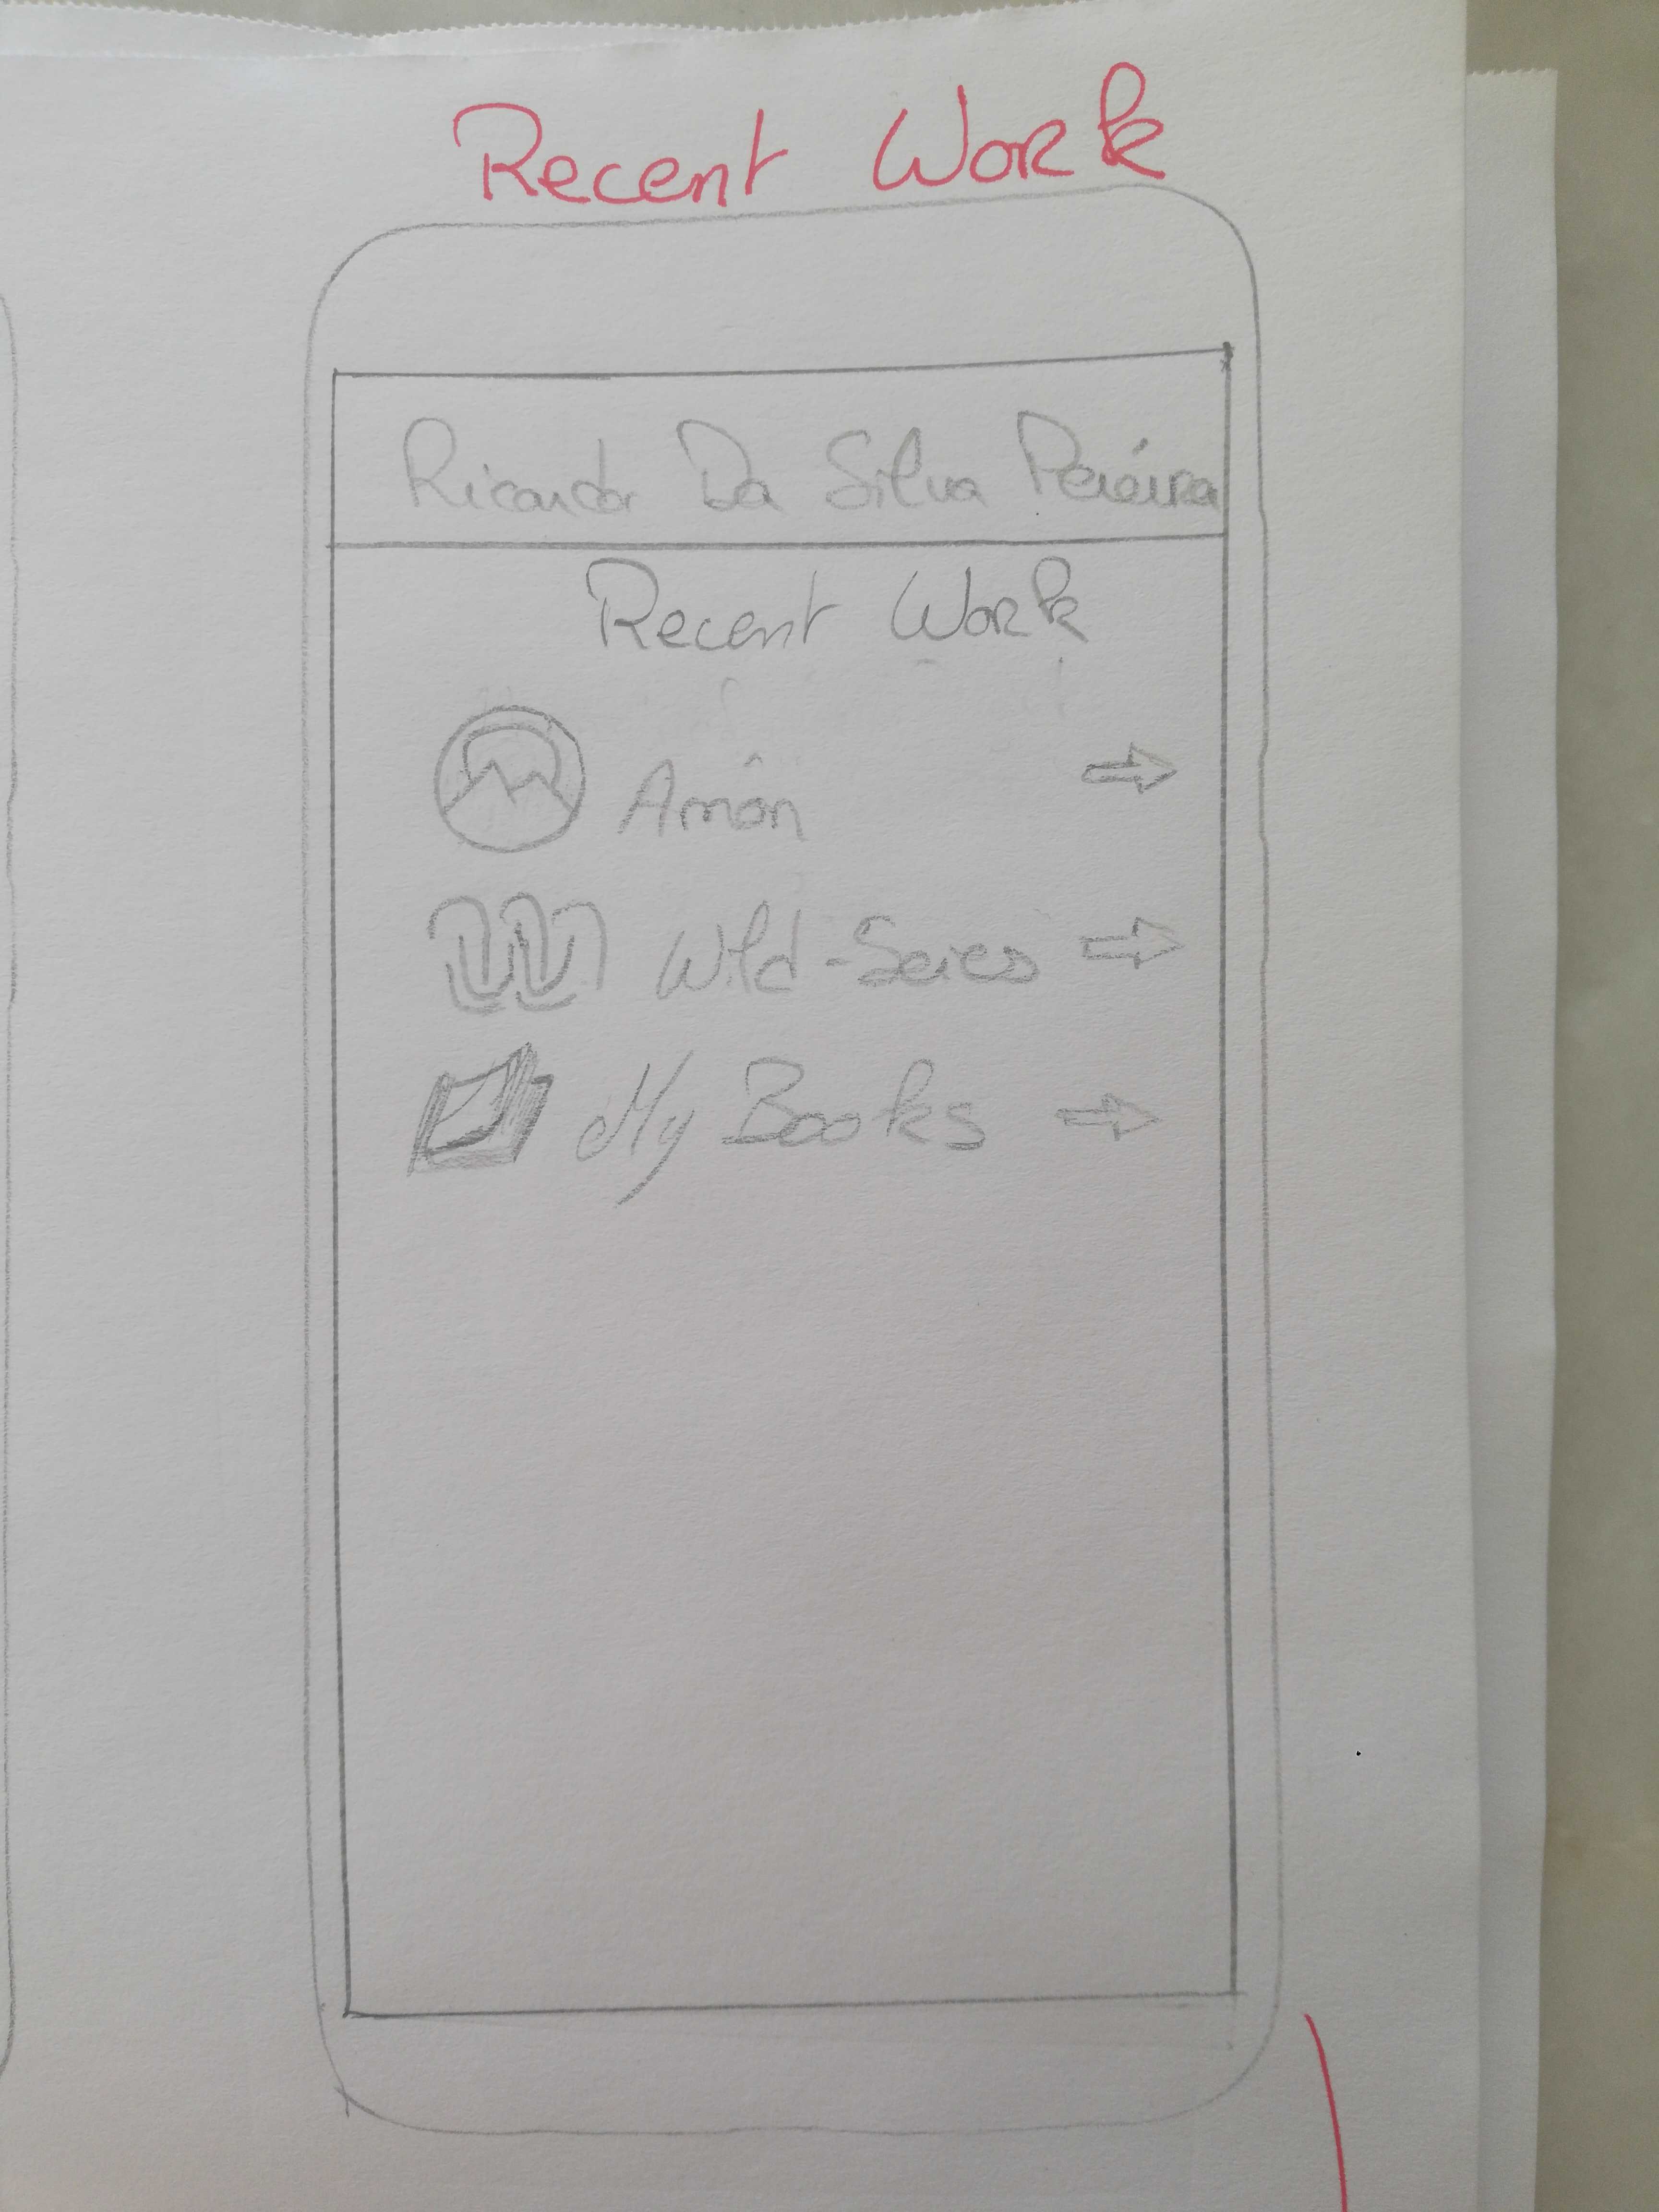 Recent Work
Ricardo Da Silva Pereira
Recent Work
Amôn
Wild-Series
My Books